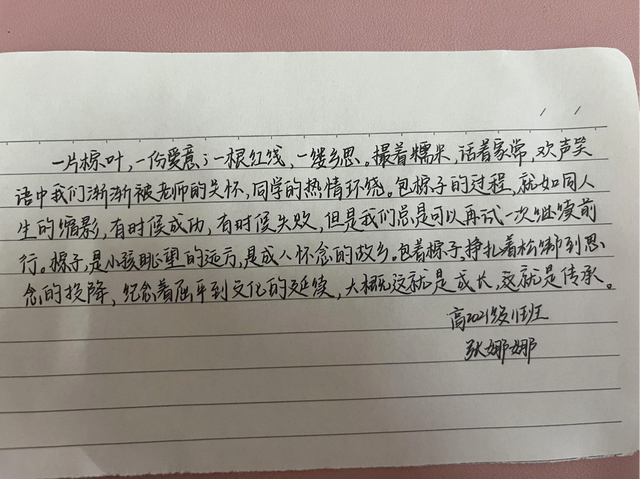 一片棕叶，一份爱意；一根红线，一缕乡思。撮着糯米，话着家常，欢声笑
语中我们渐渐被老师的关怀，同学的热情环绕。包粽子的过程，就如同人
生的缩影，有时候成功，有时候失败，但是我们总是可以再试一次继续前
行。粽子，是小孩眺望的远方，是成人怀念的故乡。包着粽子，挣扎着松绑到思
念的投降，纪念着屈平到文化的延续，大概这就是成长，这就是传承。
高2021级11班
张娜娜